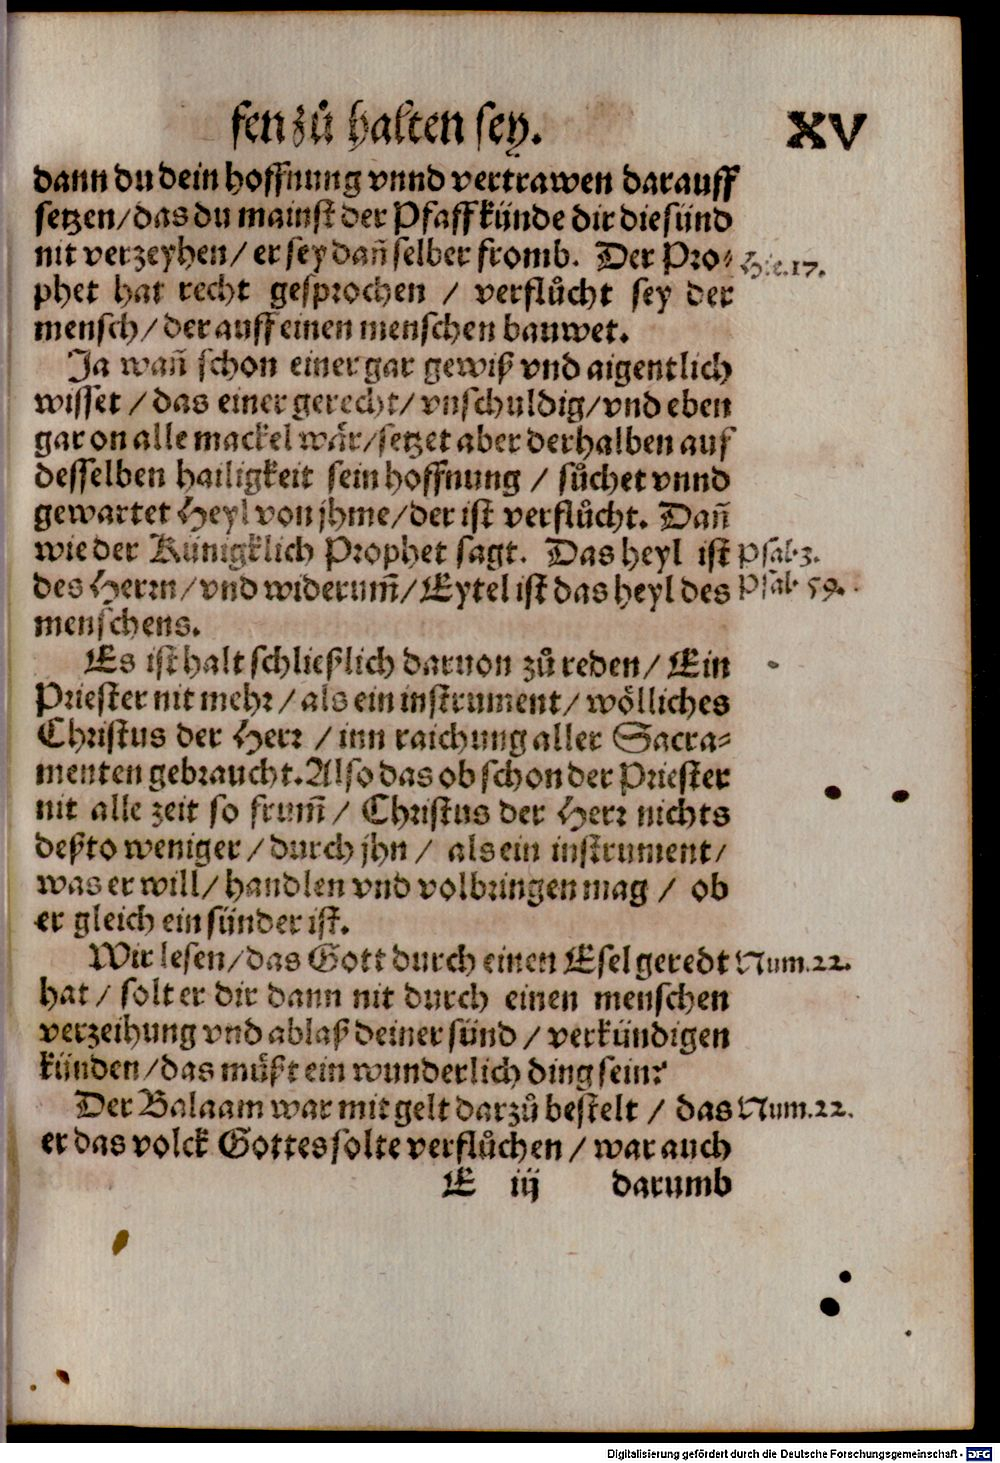 fen zů halten sey. XV
dann du dein hoffnung vnnd vertrawen darauff
setzen/das du mainst der Pfaff künde dir die sünd
nit verzeyhen/ er sey dañ selber fromb. Der Pro= Hie.17.
phet hat recht gesprochen / verflůcht sey der
mensch/ der auff einen menschen bauwet.
Ja wañ schon einer gar gewiß vnd aigentlich
wisset / das einer gerecht/ vnschuldig/vnd eben
gar on alle mackel wår/setzet aber derhalben auf
desselben hailigkeit sein hoffnung / sůchet vnnd
gewartet Heyl von jhme/der ist verflůcht. Dañ
wie der Künigklich Prophet sagt. Das heyl ist Psal.3.
des Herrn/ vnd widerum̃/ Eytel ist das heyl des Psal. 59.
menschens.
Es ist halt schließlich daruon zů reden/ Ein
Priester nit mehr / als ein instrument/ wölliches
Christus der Herr / inn raichung aller Sacra=
menten gebraucht. Also das ob schon der Priester
nit alle zeit so frum̃/ Christus der Herr nichts
deßto weniger/ durch jhn / als ein instrument/
was er will/ handlen vnd volbringen mag / ob
er gleich ein sünder ist.
Wir lesen/das Gott durch einen Esel geredt Num.22.
hat / solt er dir dann nit durch einen menschen
verzeihung vnd ablaß deiner sünd / verkündigen
künden/das müßt ein wunderlich ding sein?
Der Balaam war mit gelt darzů bestelt / das Num.22.
er das volck Gottes solte verflůchen / war auch
E iij darumb
Digitalisierung gefördert durch die Deutsche Forschungsgemeinschaft - DFG